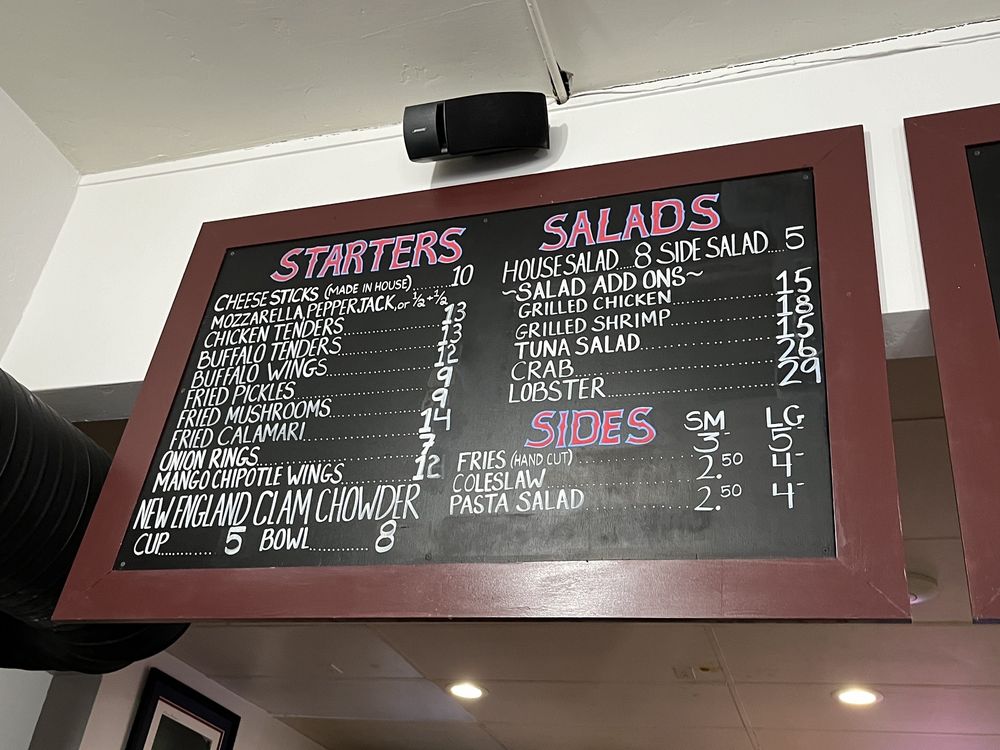 BOSE
STARTERS
CHEESE STICKS (MADE IN HOUSE)......10
MOZZARELLA, PEPPERJACK, or ½+½
CHICKEN TENDERS..........13
BUFFALO TENDERS..........13
BUFFALO WINGS..........12
FRIED PICKLES..........9
FRIED MUSHROOMS..........9
FRIED CALAMARI..........14
ONION RINGS..........7
MANGO CHIPOTLE WINGS..........12
NEW ENGLAND CLAM CHOWDER
CUP..........5 BOWL..........8
SALADS
HOUSE SALAD....8 SIDE SALAD....5
~SALAD ADD ONS~
GRILLED CHICKEN..........15
GRILLED SHRIMP..........18
TUNA SALAD..........15
CRAB..........26
LOBSTER..........29
SIDES SM LG
FRIES (HAND CUT)..........3- 5-
COLESLAW..........2.50 4-
PASTA SALAD..........2.50 4-